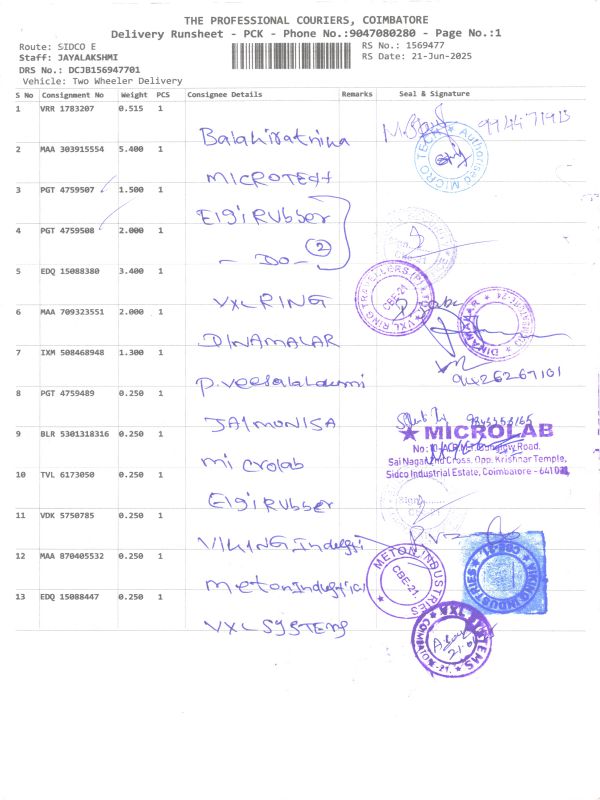 THE PROFESSIONAL COURIERS, COIMBATORE
Delivery Runsheet - PCK - Phone No.:9047080280 - Page No.:1
Route: SIDCO E
RS No.: 1569477
Staff: JAYALAKSHMI
RS Date: 21-Jun-2025
DRS No.: DCJB156947701
Vehicle: Two Wheeler Delivery
S No Consignment No Weight PCS Consignee Details Remarks Seal & Signature
1 VRR 1783207 0.515 1
Balahiratnina
2 MAA 303915554 5.400 1
MICROTECH
MICRO TECH Authorised
3 PGT 4759507 1.500 1
ElgiRubber
4 PGT 4759508 2.000 1
2
- DO -
5 EDQ 15088380 3.400 1
VXLRING
VXL RING TRAVELLERS CBE-21
6 MAA 709323551 2.000 1
DINAMALAR
DINAMALAR
7 IXM 508468948 1.300 1
9426267101
8 PGT 4759489 0.250 1
JAIMONISA
9 BLR 5301318316 0.250 1
microlab
MICROLAB
Sai Nagar 2nd Cross, Opp. Krishnar Temple,
Sidco Industrial Estate, Coimbatore - 641 021
10 TVL 6173050 0.250 1
ElgiRubber
11 VDK 5750785 0.250 1
VIKING Industri
VIKING INDUSTRIES CBE-21
12 MAA 870405532 0.250 1
metonIndustries
METON INDUSTRIES CBE-21.
13 EDQ 15088447 0.250 1
VXLSYSTEMS
VXL SYSTEMS COIMBATORE -21.